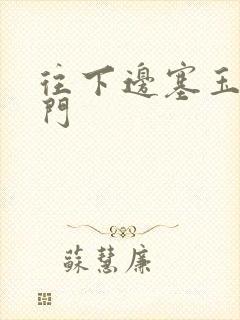 往下邊塞玉
門
蘇慧廉